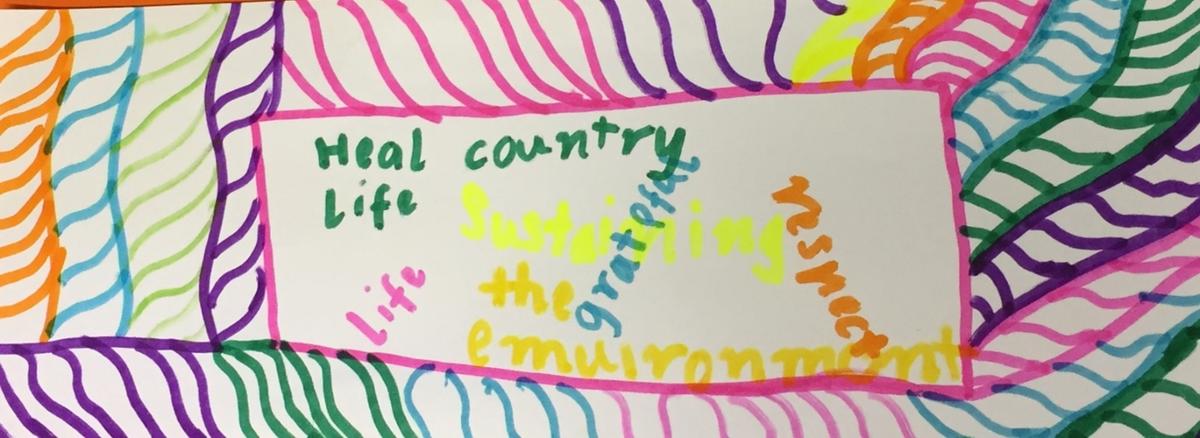 Heal country
Life
Sustaining
grateful
respect
Life
the
emuironment